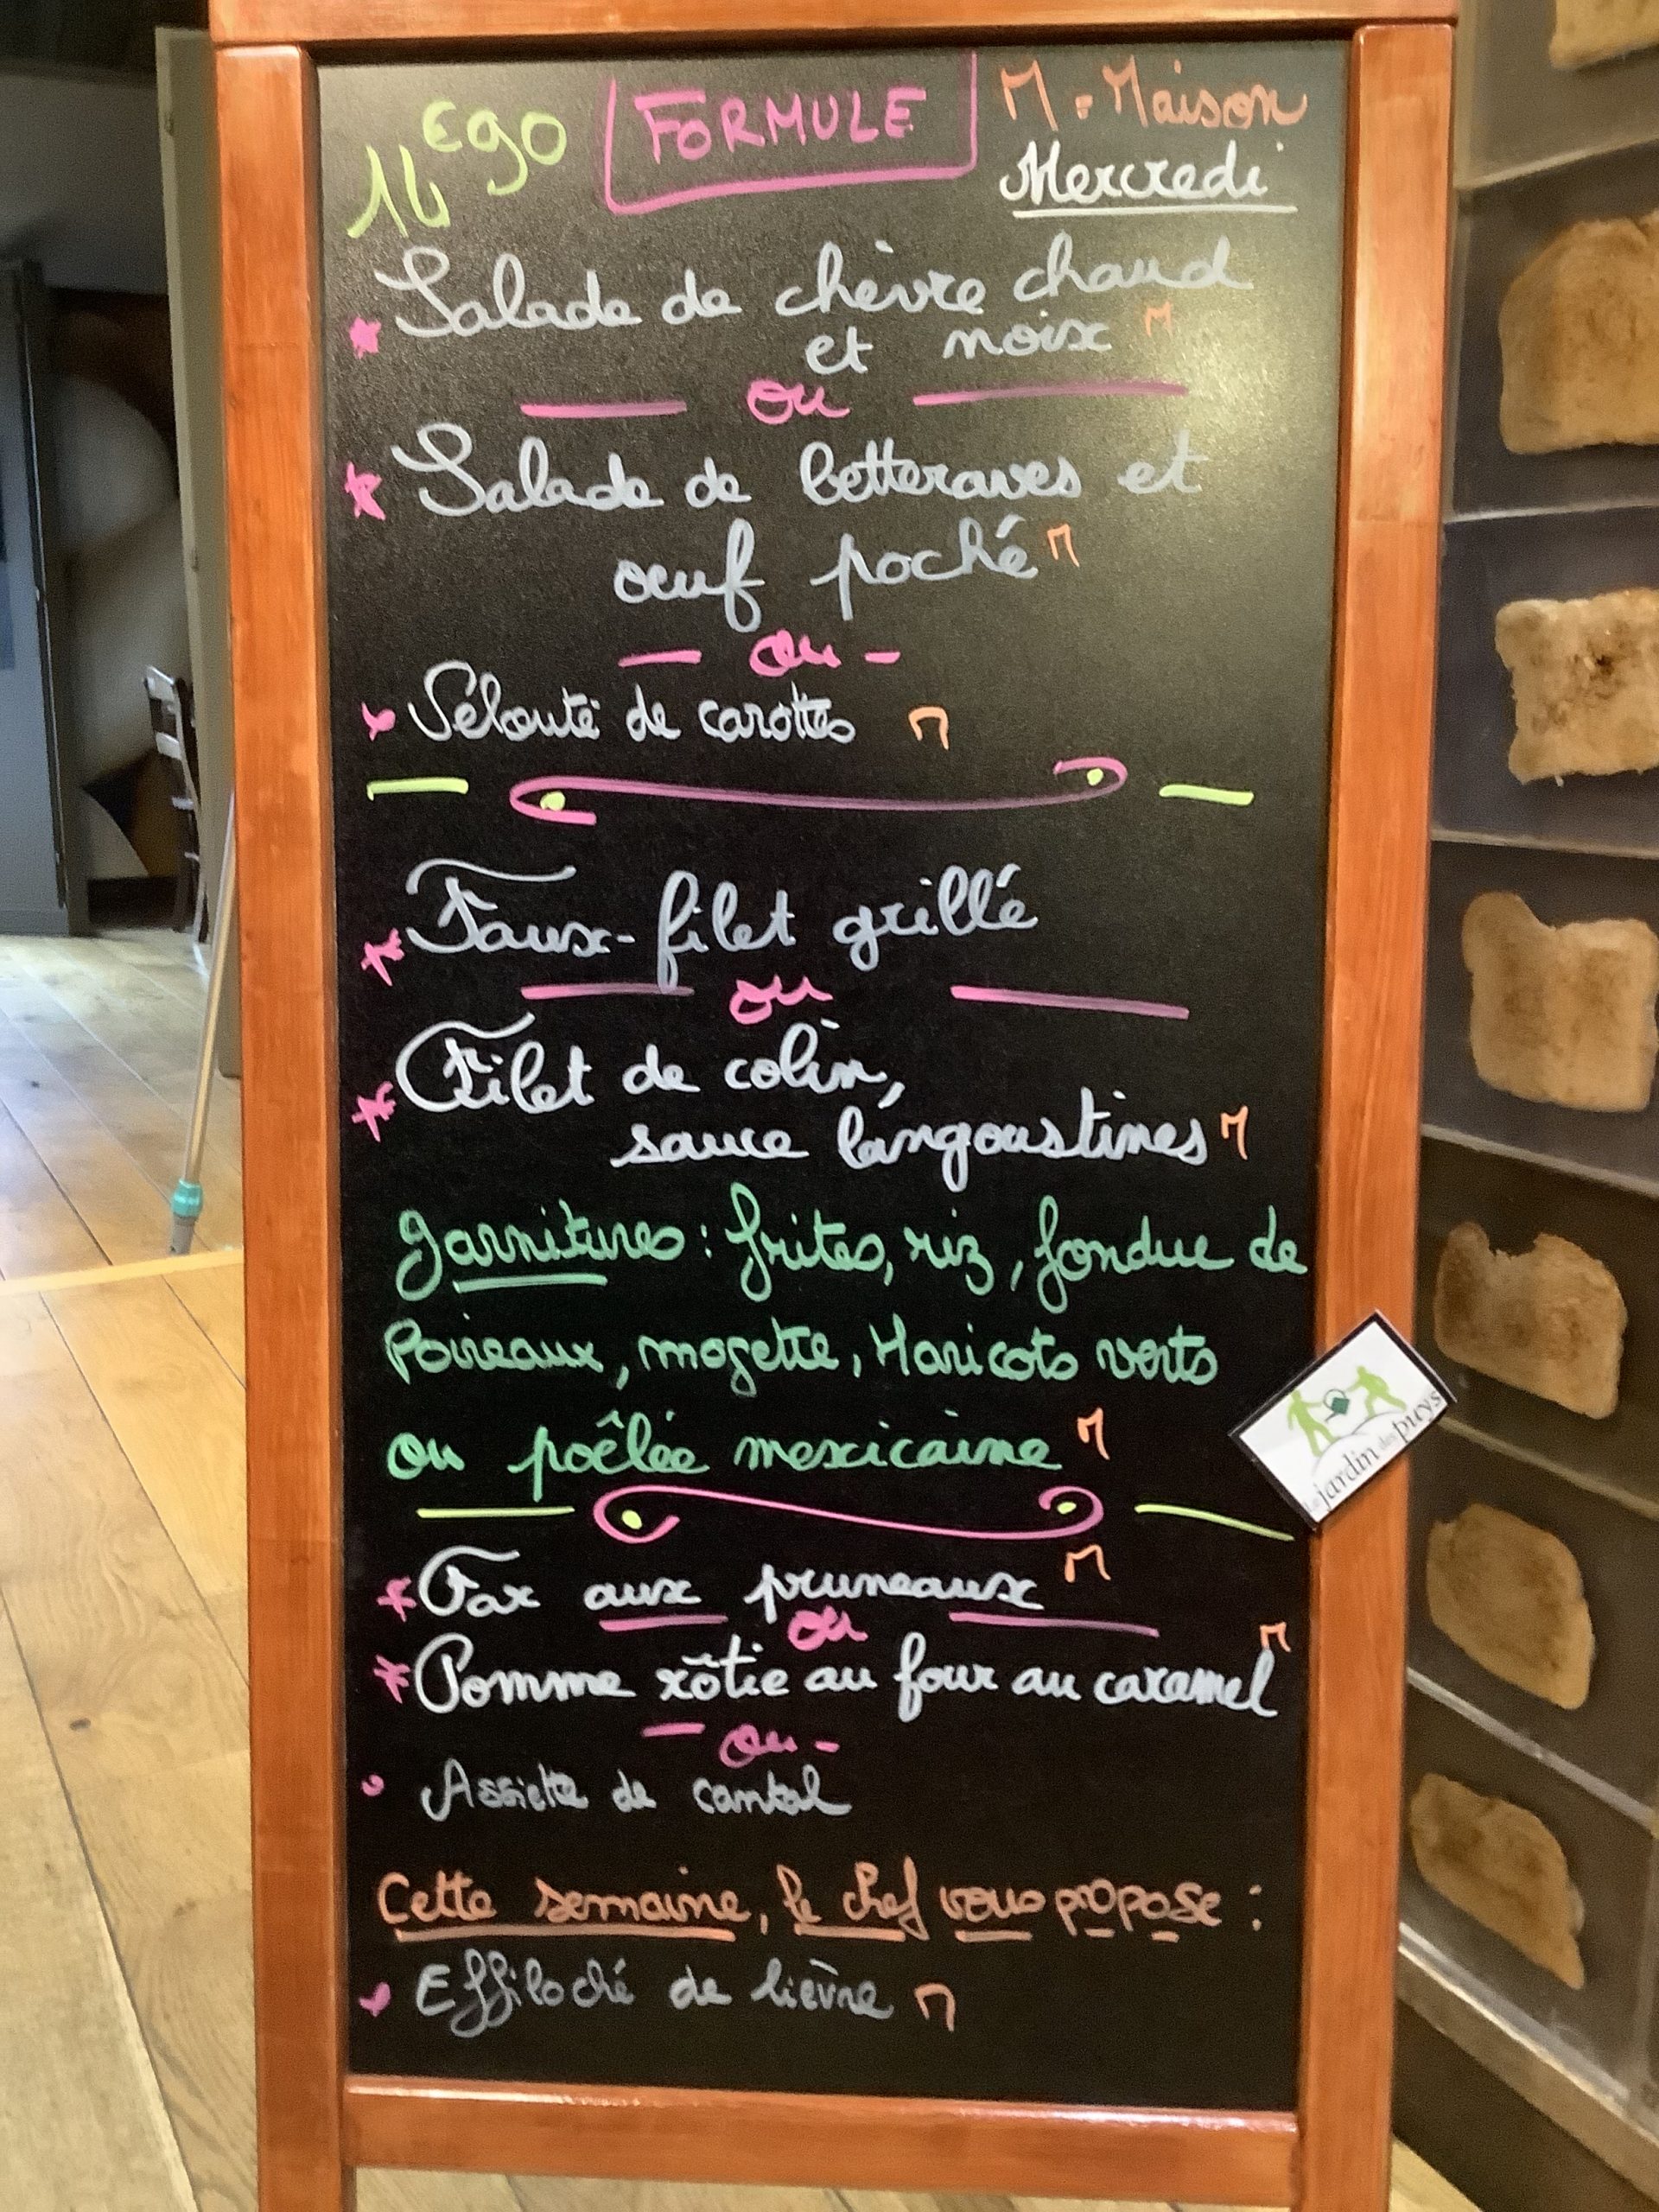 14€90 FORMULE M = Maison
Mercredi
Salade de chèvre chaud
et noix M
ou
Salade de betteraves et
oeuf poché M
ou
Velouté de carottes M
Faux-filet grillé
ou
Filet de colin,
sauce langoustines M
garnitures : frites, riz, fondue de
Poireaux, mogette, Haricots verts
ou poêlée mexicaine M
Far aux pruneaux M
ou
Pomme rôtie au four au caramel M
ou
Assiette de cantal
Cette semaine, le chef vous propose :
Effiloché de lièvre M
Le jardin des puys